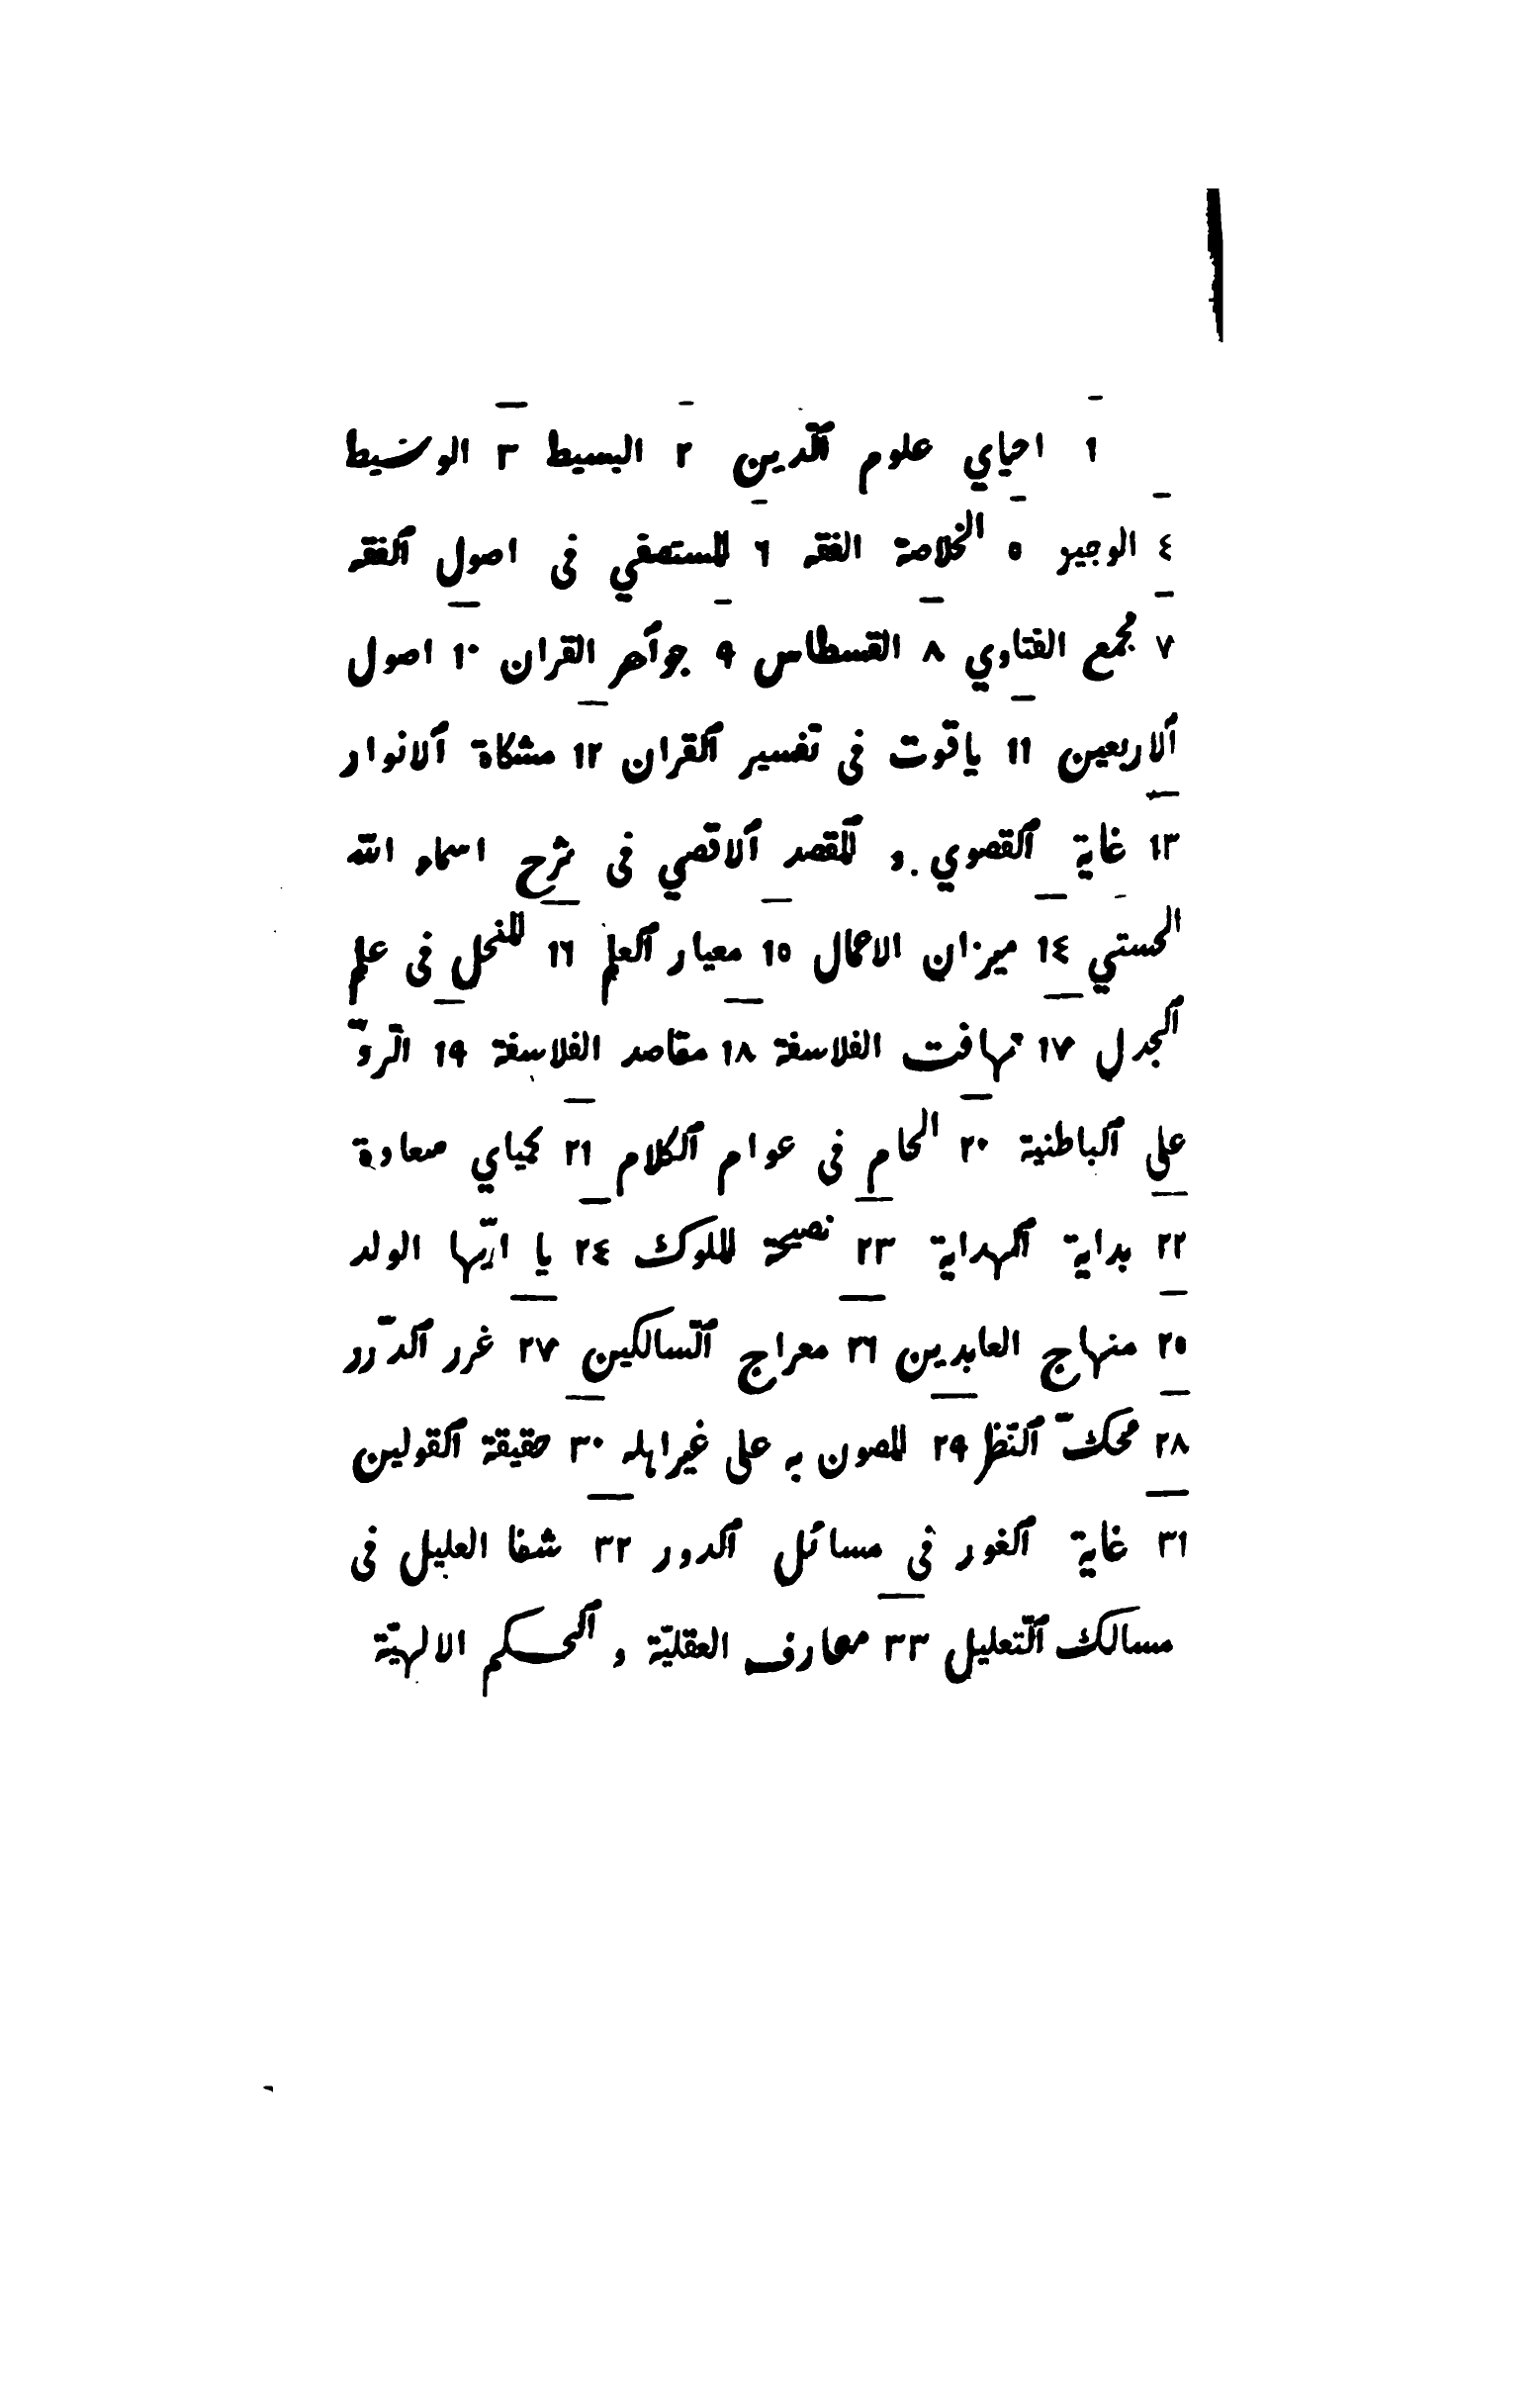 ١ احياي علوم ٱلّدين ٢ البسيط ٣ الوسيط
٤ الوجيز ٥ الخلاصة الفقه ٦ المستصفي فى اصول ٱلفقه
٧ مجمع الفتاوي ٨ القسطاس ٩ جوآهر القران ١٠ اصول
ٱلاربعين ١١ ياقوت فى تفسير ٱلقران ١٢ مشكاة ٱلانوار
١٣ غاية ٱلقصوي و ٱلمقصد ٱلاقصي فى شرح اسماء الله
الحستي ١٤ ميزان الاعمال ١٥ معيار ٱلعلم ١٦ المنحل فى علم
ٱلجدل ١٧ تهافت الفلاسفة ١٨ مقاصد الفلاسفة ١٩ الّردّ
على ٱلباطنية ٢٠ الحام فى عوام ٱلكلام ٢١ كمياي سعادة
٢٢ بداية ٱلهداية ٢٣ نصيحة الملوك ٢٤ يا ايّها الولد
٢٥ منهاج العابدين ٢٦ معراج ٱلّسالكين ٢٧ غرر ٱلدّرر
٢٨ محكّ ٱلنّظر ٢٩ المصون به على غير اهله ٣٠ حقيقة ٱلقولين
٣١ غاية ٱلغور فى مسائل ٱلدور ٣٢ شفا العليل فى
مسالك ٱلتّعليل ٣٣ معارف العقليّة و ٱلحكم الالهيّة